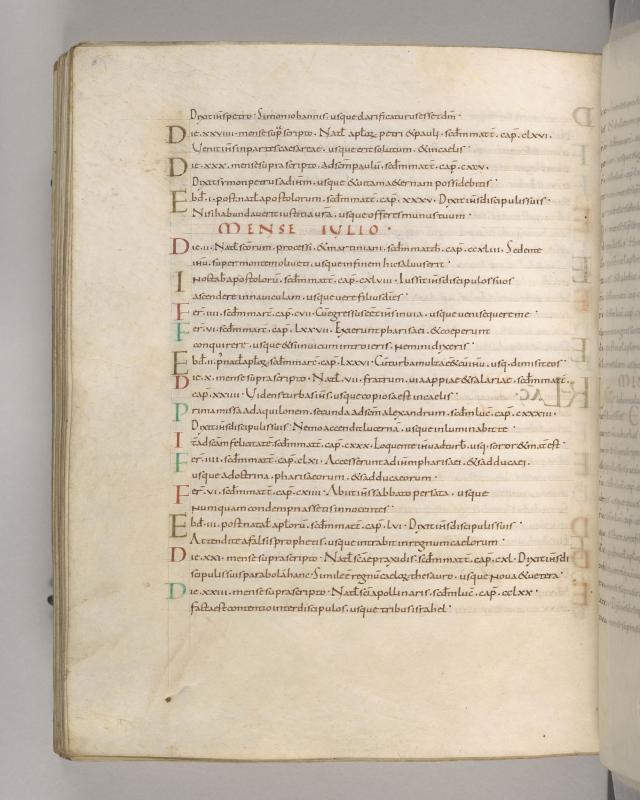 Dixit ihs petro· Simon iohannis· usque clarificaturus esset dm̄·
Die·xxviiii·mense sup̄ scripto·Nat̄ apl̄oꝝ petri & pauli·scd̄m matt̄·cap̄·clxvi·
Venit ihs in partes caesareae·usque erit solutum·& in caelis·
Die·xxx·mense supra scripto·ad scm̄ paulū·scd̄m matt̄·cap̄·cxcv·
Dixit simon petrus ad ihm̄·usque & uitam aeternam possidebitis·
Ebd̄·i·post nat̄ apostolorum·scd̄m matt̄·cap̄·xxxv·Dixit ihs discipulis suis·
Nisi habundauerit iustitia ura·usque offeres munus tuum·
MENSE IULIO·
Die·ii·Nat̄ scōrum·processi·& martiniani·scd̄m matth̄·cap̄·ccxliii·Sedente
ihū·super montem oliueti·usque in finem hic saluus erit·
In octab̄ apostolorū·scd̄m matt̄·cap̄·cxlviii·Iussit ihs discipulos suos
ascendere in nauiculam·usque uere filius di es·
Fer̄·iiii·scd̄m marc̄·cap̄·cvii·Cū egressus esset ihs in uia·usque ueni sequere me·
Fer̄·vi·scd̄m marc̄·cap̄·lxxvii·Exierunt pharisaei·& coeperunt
conquirere·usque & si in uicum introieris·nemini dixeris·
Ebd̄·ii·p̄ nat̄ apl̄oꝝ·scd̄m marc̄·cap̄·lxxvi·Cū turba multa eet cū ihū·usq· dimisit eos·
Die·x·mense supra scripto·Nat̄·vii·fratrum·uia appiae & salariae·scd̄m matt̄·
cap̄·xxiii·Uidens turbas ihs·usque copiosa est in caelis·
Prima missa ad aquilonem·secunda ad scm̄ alexandrum·scd̄m luc̄·cap̄·cxxxiii·
Dixit ihs discipulis suis·Nemo accendit lucernā·usque inluminabit te·
It̄ ad scām felicitatē·scd̄m matt̄·cap̄·cxxx·Loquente ihū ad turb̄·usq· soror & mat̄ est·
Fer̄·iiii·scd̄m matt̄·cap̄·clxi·Accesserunt ad ihm̄ pharisaei·& sadducaei·
usque a doctrina·pharisaeorum·& sadducaeorum·
Fer̄·vi·scd̄m matt̄·cap̄·cxiiii·Abiit ihs sabbato per sata·usque
numquam condempnassetis innocentes·
Ebd̄·iii·post natal̄ apl̄orū·scd̄m matt̄·cap̄·lvi·Dixit ihs discipulis suis·
Attendite a falsis prophetis·usque intrabit in regnum caelorum·
Die·xxi·mense supra scripto·Nat̄ scē praxidis·scd̄m matt̄·cap̄·cxl·Dixit ihs di
scipulis suis parabolā hanc·Simile ē regnū caeloꝝ thesauro·usque noua & uetera·
Die·xxiii·mense supra scripto·Nat̄ scī apollinaris·scd̄m luc̄·cap̄·cclxx·
facta est contentio inter discipulos·usque tribus israhel·